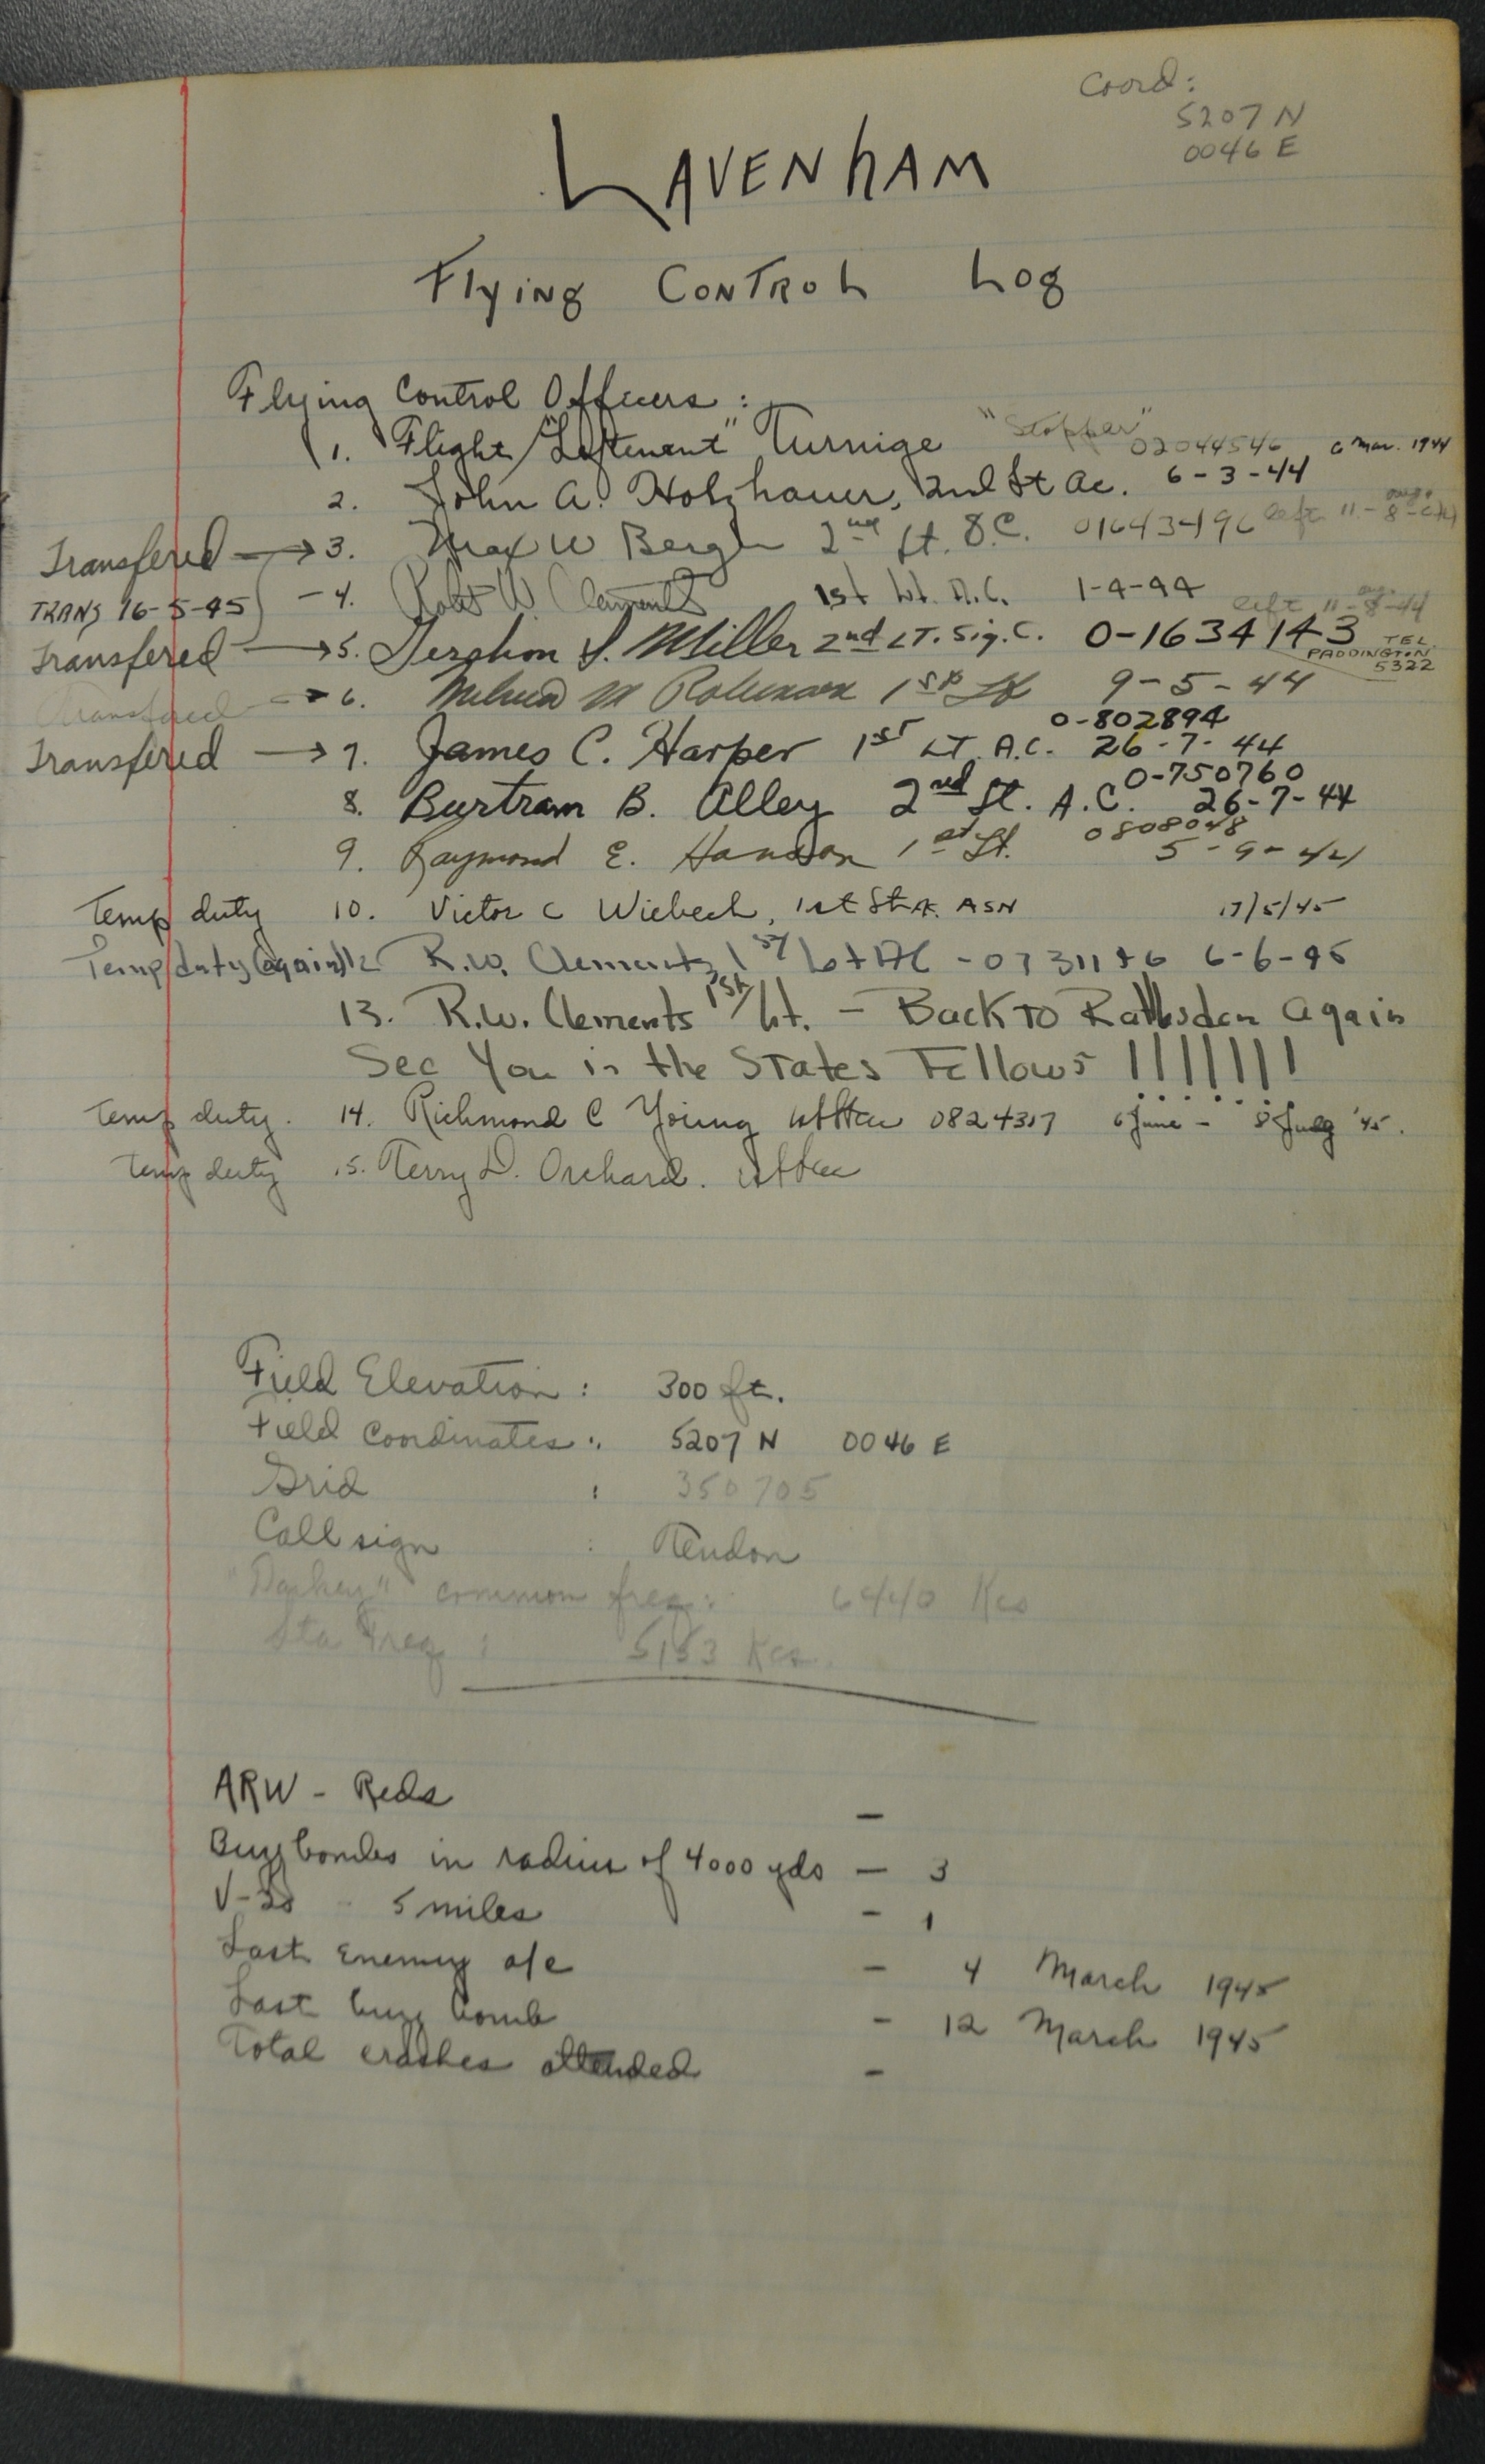 Coord:
5207 N
0046 E
LAVENHAM
Flying CONTROL Log
Flying Control Officers :
1. Flight "Leftenant" Turnige "Stopper"
02044546 6 Mar. 1944
2. John A. Holzhauer, 2nd Lt Ac. 6-3-44
Transfered → 3. Max W Bergh 2nd Lt. S.C. 01643496 left 11-8-44
TRANS 16-5-45 - 4. Robt W. Clements 1st Lt. A.C. 1-4-44
left 11-8-44
Transfered → 5. Gershon S. Miller 2nd LT. Sig. C. 0-1634143 TEL. PADDINGTON 5322
Transfered → 6. M Robinson 1st Lt 9-5-44
0-802894
Transfered → 7. James C. Harper 1st LT. A.C. 26-7-44
0-750760
8. Burtram B. Alley 2nd Lt. A.C. 26-7-44
0808048
9. Raymond E. Hanson 1st Lt. 5-9-44
Temp duty 10. Victor C Wiebech, 1st Lt A. ASN 17/5/45
Temp duty (again) 12 R.W. Clements, 1st Lt AC - 0731186 6-6-45
13. R.W. Clements 1st/Lt. - Back TO Rattlesden Again
See You in the States Fellows !!!!!!!
Temp duty. 14. Richmond C Young 0824317 6 June - 8 July '45.
Temp duty 15. Terry D. Orchard.
Field Elevation : 300 ft.
Field Coordinates : 5207 N 0046 E
Grid : 350705
Call sign : Tendon
"Darkey" common freq : 6440 Kcs
Sta Freq : 5153 Kcs.
ARW - Reds -
Buzz bombs in radius of 4000 yds - 3
V-2s 5 miles - 1
Last Enemy a/c - 4 March 1945
Last buzz bomb - 12 March 1945
Total crashes attended -